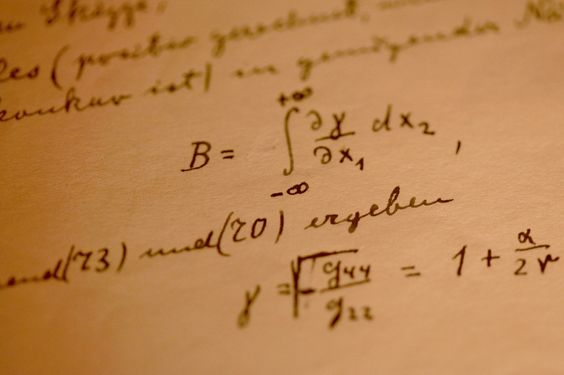 Skizze,
(positiv gerechnet,
konkav ist) in genügender
B = ∫_{-∞}^{+∞} ∂γ/∂x₁ dx₂ ,
(73) und (70) ergeben
γ = √(-g₄₄/g₂₂) = 1 + α/2r